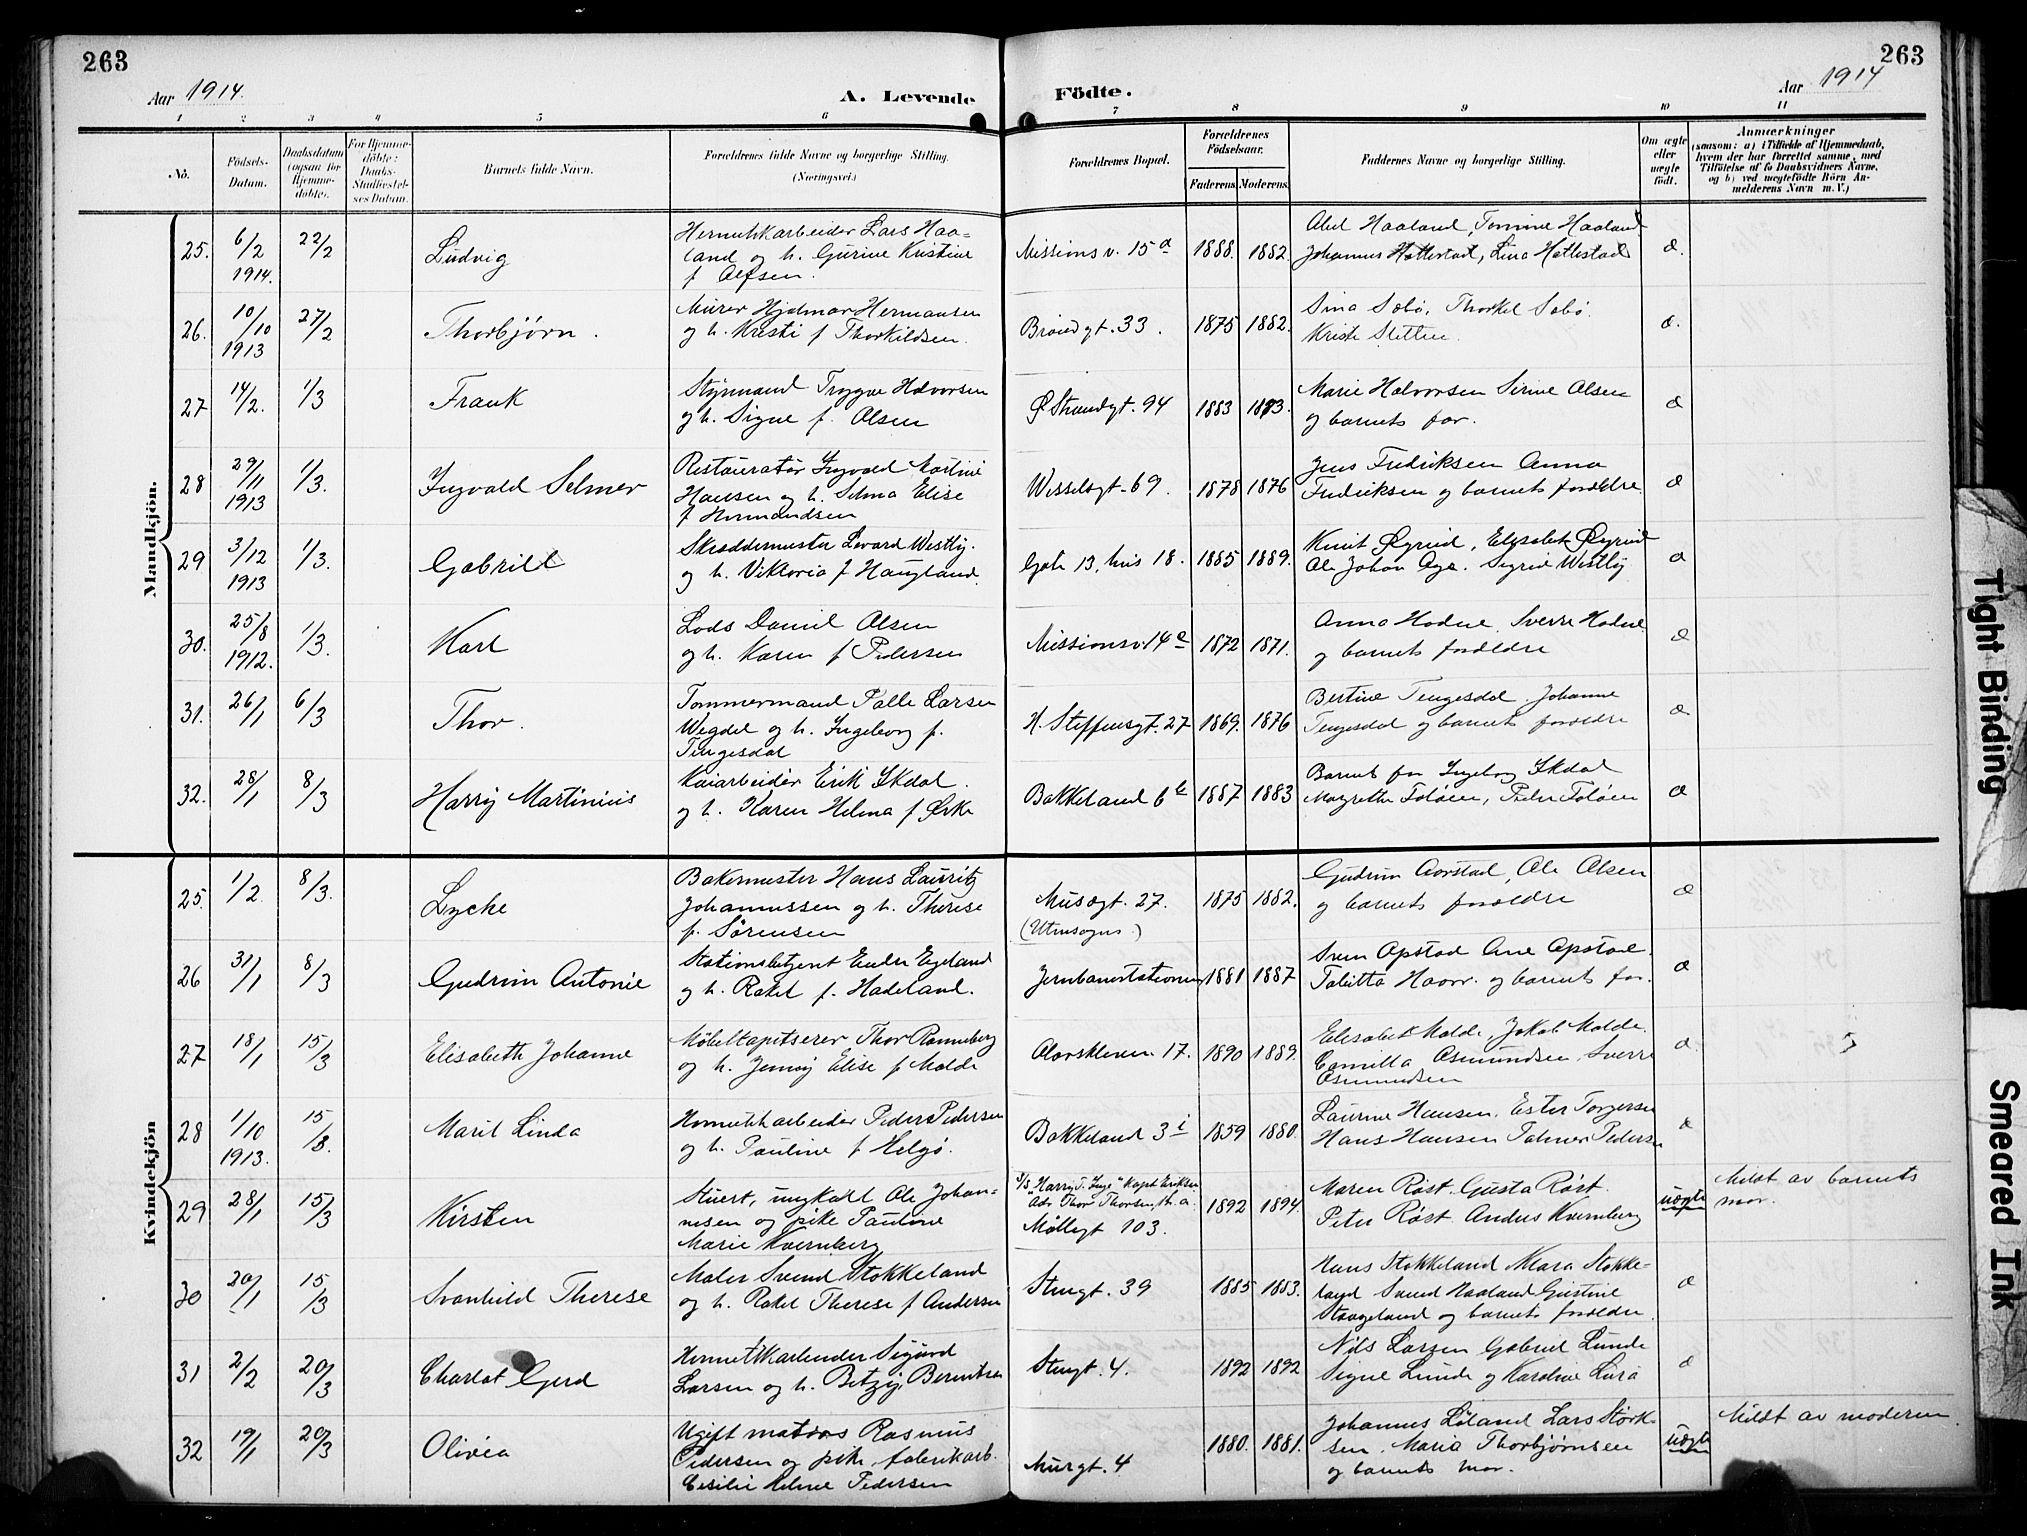 263
263
Aar 1914.
A. Levende
Födte.
Aar 1914
1 2 3 4 5 6 7 8 9 10 11
No.
Födsels-
Datum.
Daabsdatum
(ogsaa for
Hjemme-
döbte).
For Hjemme-
döbte:
Daabs-
Stadfæstel-
ses Datum.
Barnets fulde Navn.
Forældrenes fulde Navne og borgerlige Stilling.
(Næringsvei.)
Forældrenes Bopæl.
Forældrenes
Födselsaar.
Faderens. Moderens.
Faddernes Navne og borgerlige Stilling.
Om ægte
eller
uægte
født.
Anmærkninger
(saasom: a) i Tilfælde af Hjemmedaab,
hvem der har forrettet samme, med
Tilföielse af to Daabsvidners Navne,
og b) ved uægtefödte Börn An-
melderens Navn m. V.)
Mandkjön.
25. 6/2 1914. 22/2
Ludvig
Hermetikarbeider Lars Haa-
land og h. Gurine Kristine
f Olsen.
Missions v. 15a
1888. 1882.
Abel Haaland, Tomine Haaland
Johannes Hattestad, Lina Hattestad
æ.
26. 10/10 1913 27/2
Thorbjørn.
Murer Hjalmar Hermansen
og h. Kristi f Thorkildsen.
Brøndgt. 33.
1875 1882.
Sina Sæbø, Thorkel Sæbø.
Kristi Sletten.
æ.
27 14/2. 1/3
Frank
Styrmand Trygve Halvorsen
og h. Signe f. Olsen
Ø Strandgt. 94
1883 1883.
Marie Halvorsen Serine Olsen
og barnets far.
æ
28 29/11 1913 1/3.
Ingvald Selmer
Restauratør Ingvald Martin
Hansen og h. Selma Elise
f Hermandsen
Wesselsgt. 69.
1878 1876
Jens Fredriksen Anna
Fredriksen og barnets forældre
æ
29 3/12 1913 1/3.
Gabriel
Skræddermester Sevard Westby.
og h. Viktoria f Haugland.
Gate 13, hus 18.
1885 1889.
Knut Øgrind, Elisabet Øgrind
Ole Johan Aga. Sigrid Westby
æ
30. 25/8 1912. 1/3.
Karl
Lods Daniel Olsen
og h. Karen f Pedersen
Missionsv 14e
1872 1871.
Anna Hodne. Sverre Hodne.
og barnets forældre
æ
31. 26/1 6/3
Thor.
Tømmermand Palle Larsen
Wegdal og h. Ingeborg f.
Tengesdal
K. Steffensgt. 27
1869. 1876
Bertine Tengesdal, Johanne
Tengesdal og barnets forældre
æ
32. 28/1 8/3
Harry Martinius
Kaiarbeider Erik Ekdal.
og h. Karen Helena f Øske
Bakkeland 6b
1887 1883
Barnets far Ingeborg Ekdal
Margrethe Foløen, Peder Foløen
æ
Kvindekjön
25. 1/2. 8/3.
Lycke
Bakermester Hans Lauritz
Johannessen og h. Therese
f. Sørensen
Musægt. 27.
(Utensogns.)
1875 1882.
Gudrun Aarstad, Ole Olsen
og barnets forældre
æ
26 31/1 8/3
Gudrun Antonie
Stationsbetjent Endre Egeland
og h. Rakel f. Hadeland.
Jernbanestationen
1881 1887
Sven Opstad Ane Opstad.
Tabitta Haavr. og barnets far.
æ
27 18/1 15/3
Elisabeth Johanne
Møbeltapetserer Thor Ranneberg
og h. Jenny Elise f Molde
Olavskleven. 17.
1890 1889.
Elisabet Molde, Jakob Molde.
Camilla Osmundsen, Sverre
Osmundsen
æ.
28 1/10 1913. 15/3.
Marit Linda
Hermetikarbeider Peder Pedersen
og h. Pauline f Helgø.
Bakkeland 3i
1859 1880.
Laurine Hansen. Ester Torgersen
Hans Hansen Palmer Pedersen
æ
29 28/1 15/3
Kirsten
Stuert, ungkarl Ole Johan-
nesen og pike Pauline
Marie Kvernberg
S/S "Harry T. Inge" Kapt Eriksen
Adr Thor Thorsen, th. a.
Møllegt 103.
1892 1894.
Maren Røst. Gusta Røst.
Peter Røst. Anders Kvernberg
uægte
Meldt av barnets
mor.
30 20/1 15/3
Svanhild Therese
Maler Svend Stokkeland
og h. Rakel Therese f Andersen
Stengt. 39
1885 1883.
Hans Stokkeland Klara Stokke-
land Svend Haaland Gustine
Skaageland og barnets forældre
æ
31 2/2 20/3
Charlot Gerd
Hermetikarbeider Sigurd
Larsen og h. Betzy Berentsen
Stengt. 4.
1892 1892
Nils Larsen Gabriel Lunde
Signe Lunde og Karoline Lura
æ
32 19/1 20/3
Olivia
Ugift matros Rasmus
Pedersen og pike, fabrikarb.
Cecilie Helene Pedersen
Murgt. 4
1880. 1881.
Johannes Løland Lars Stork-
sen. Maria Thorbjørnsen
og barnets mor.
uægte
Meldt av moderen
Tight Binding
Smeared Ink